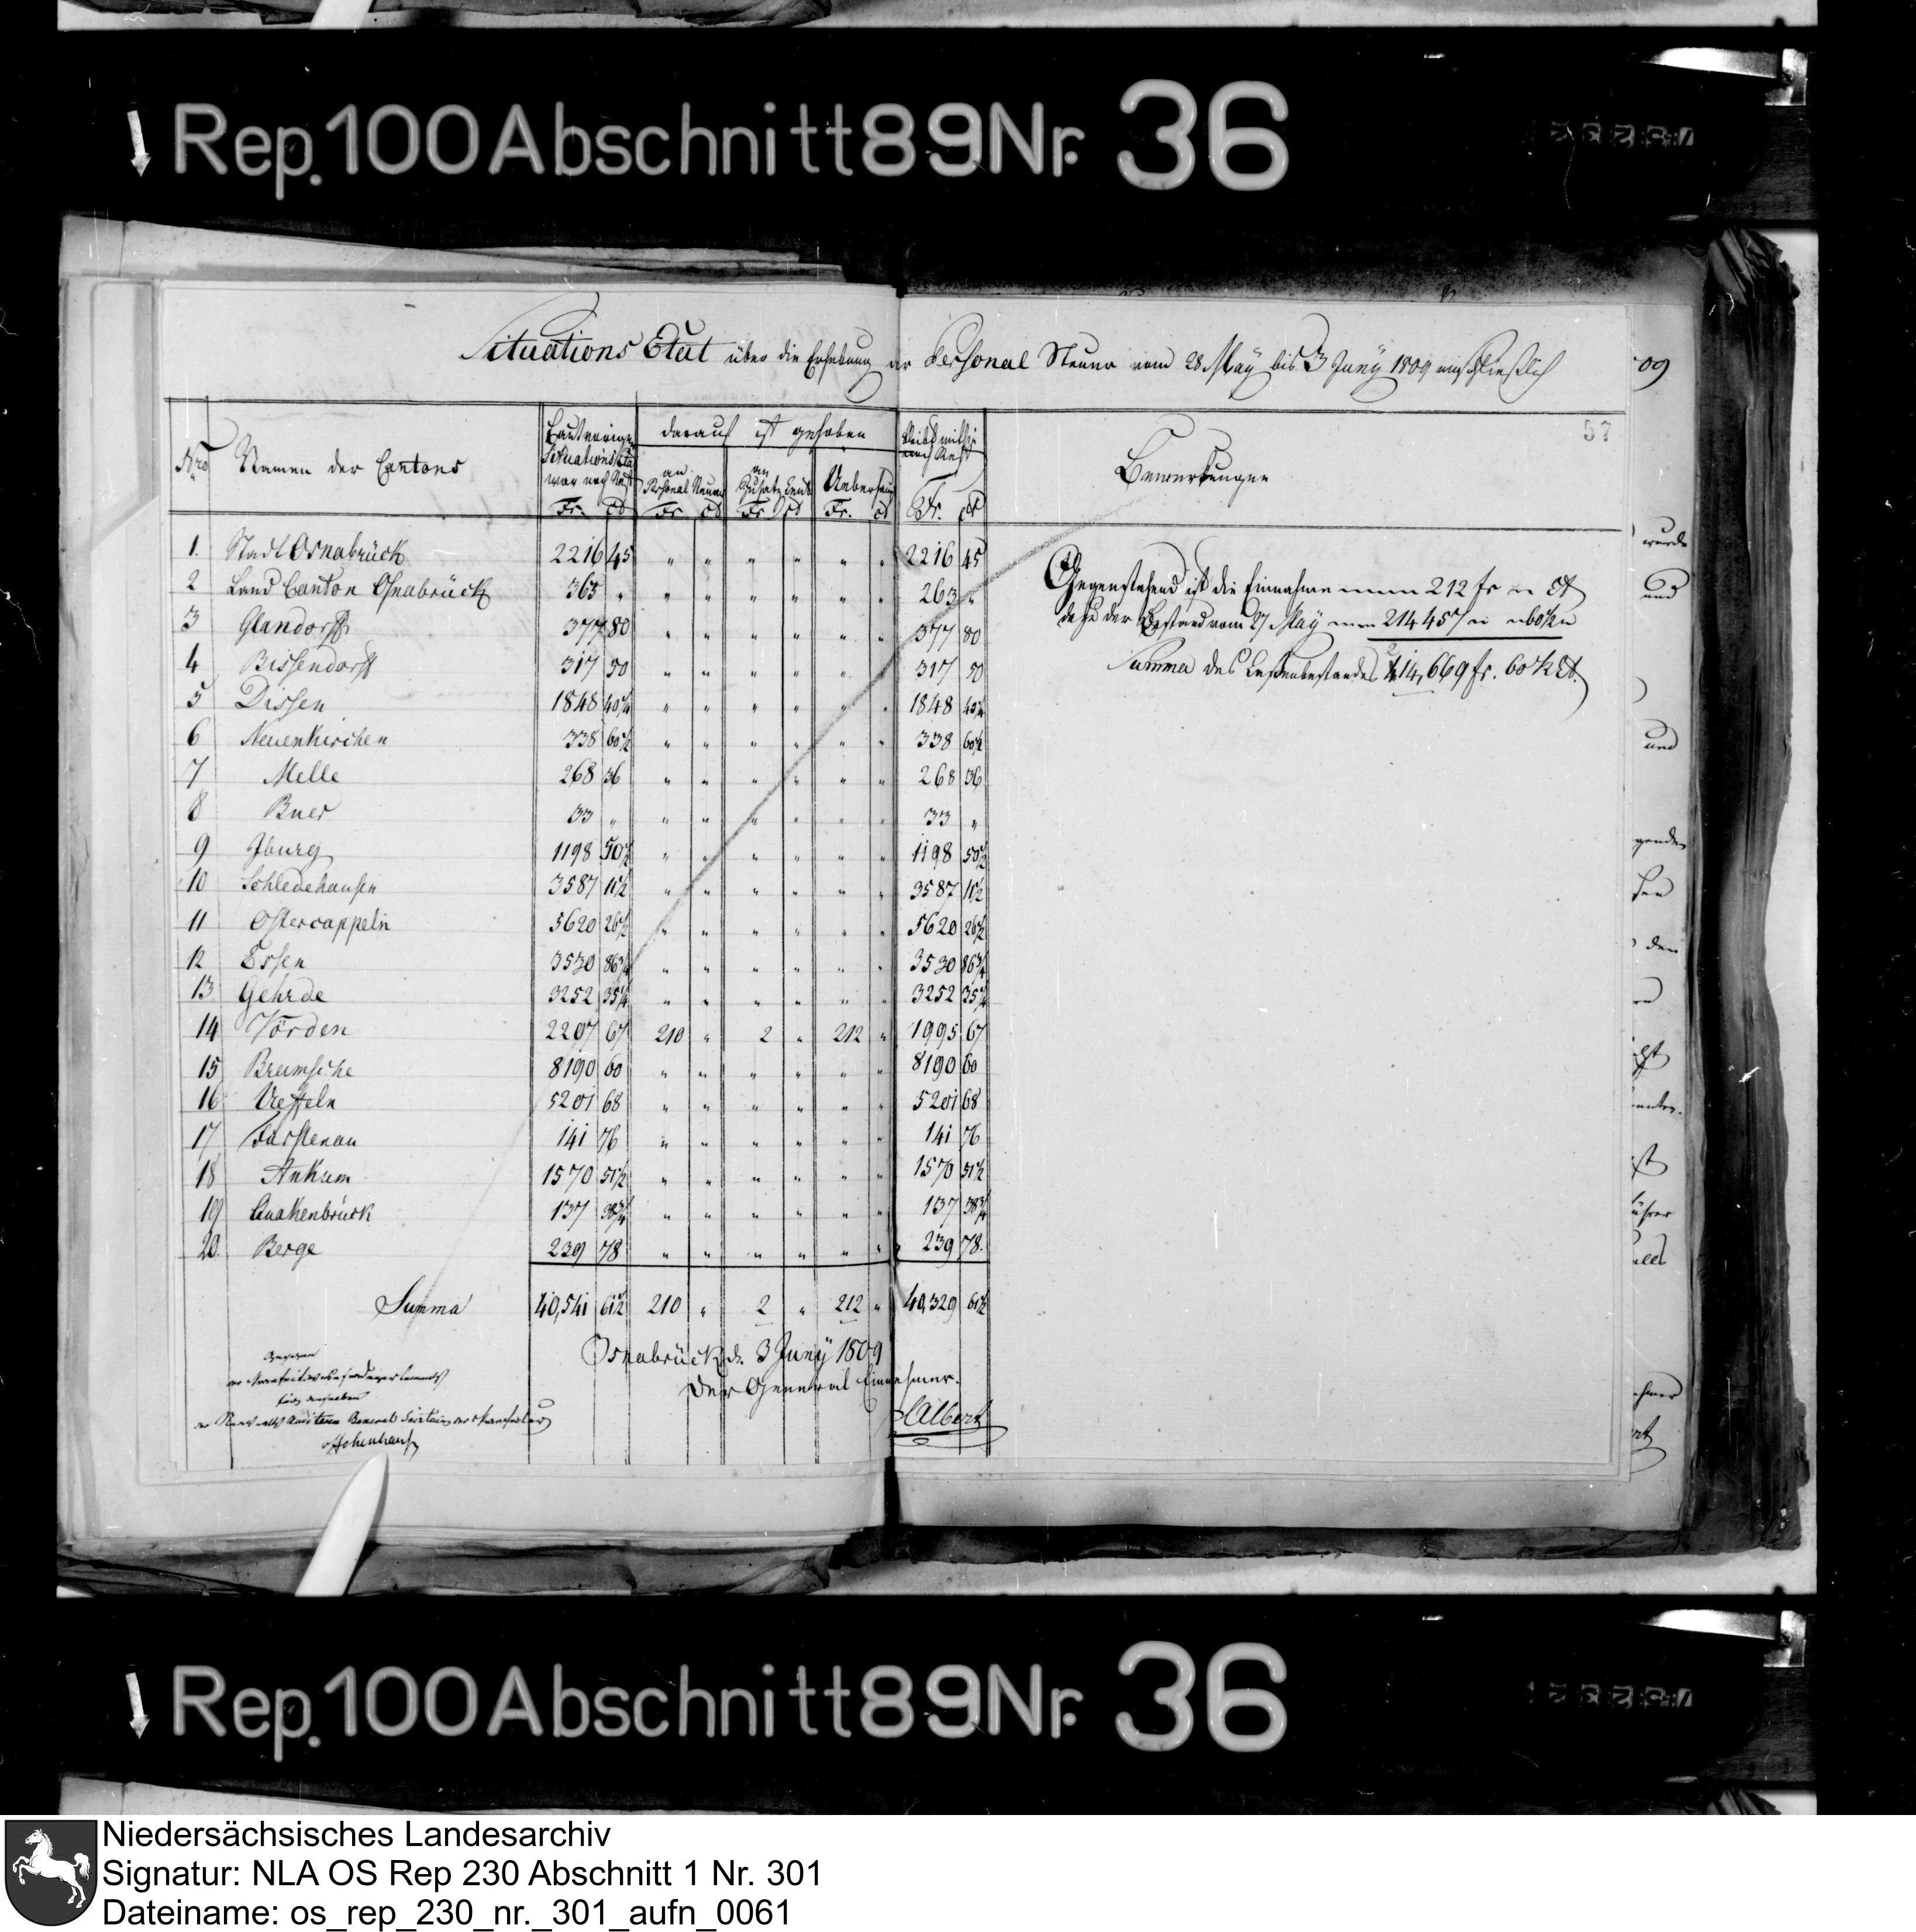 Rep. 100 Abschnitt 89 Nr. 36
Situations Etat über die Erhebung der Personal Steuer vom 28 May bis 3 Juny 1809 einschließlich
09
57
Nro Namen der Cantons Laut vorigen Situations Etat war noch Rest darauf ist gehoben bleibt mithin noch Rest Bemerkungen
an Personal Steuer an Zusatz Cent. Ueberhaupt
Fr. Ct Fr Ct Fr Ct Fr. Ct Fr. Ct
1. Stadt Osnabrück 2216 45 " " " " " " 2216 45
2 Land Canton Osnabrück 363 " " " " " " " 263 "
3 Glandorff 377 80 " " " " " " 377 80
4 Bissendorff 317 50 " " " " " " 317 50
5 Dissen 1848 40¼ " " " " " " 1848 40¼
6 Neuenkirchen 338 60½ " " " " " " 338 60½
7 Melle 268 36 " " " " " " 268 36
8 Buer 33 " " " " " " " 33 "
9 Iburg 1198 50½ " " " " " " 1198 50½
10 Schledehausen 3587 11½ " " " " " " 3587 11½
11 Ostercappeln 5620 26½ " " " " " " 5620 26½
12 Essen 3530 86¾ " " " " " " 3530 86¾
13 Gehrde 3252 35¼ " " " " " " 3252 35¼
14 Vörden 2207 67 210 " 2 " 212 " 1995 67
15 Bramsche 8190 60 " " " " " " 8190 60
16 Ueffeln 5201 68 " " " " " " 5201 68
17 Fürstenau 141 76 " " " " " " 141 76
18 Ankum 1570 51½ " " " " " " 1570 51½
19 Quakenbrück 137 38¾ " " " " " " 137 38¾
20. Berge 239 78 " " " " " " 239 78.
Summa 40,541 61½ 210 " 2 " 212 " 40,329 61½
Gegenstehend ist die Einnahme 212 fr Ct
dazu der Bestand vom 27 May 214457 60½
Summa des Cassenbestandes 214,669 fr. 60½ Ct.
Osnabrück d. 3 Juny 1809
Der General Einnehmer.
Albert
Gesehen
General Secretair der Praefectur
vHohenhausen
wurde
und
und
den
ührer
Rep. 100 Abschnitt 89 Nr. 36
Niedersächsisches Landesarchiv
Signatur: NLA OS Rep 230 Abschnitt 1 Nr. 301
Dateiname: os_rep_230_nr._301_aufn_0061